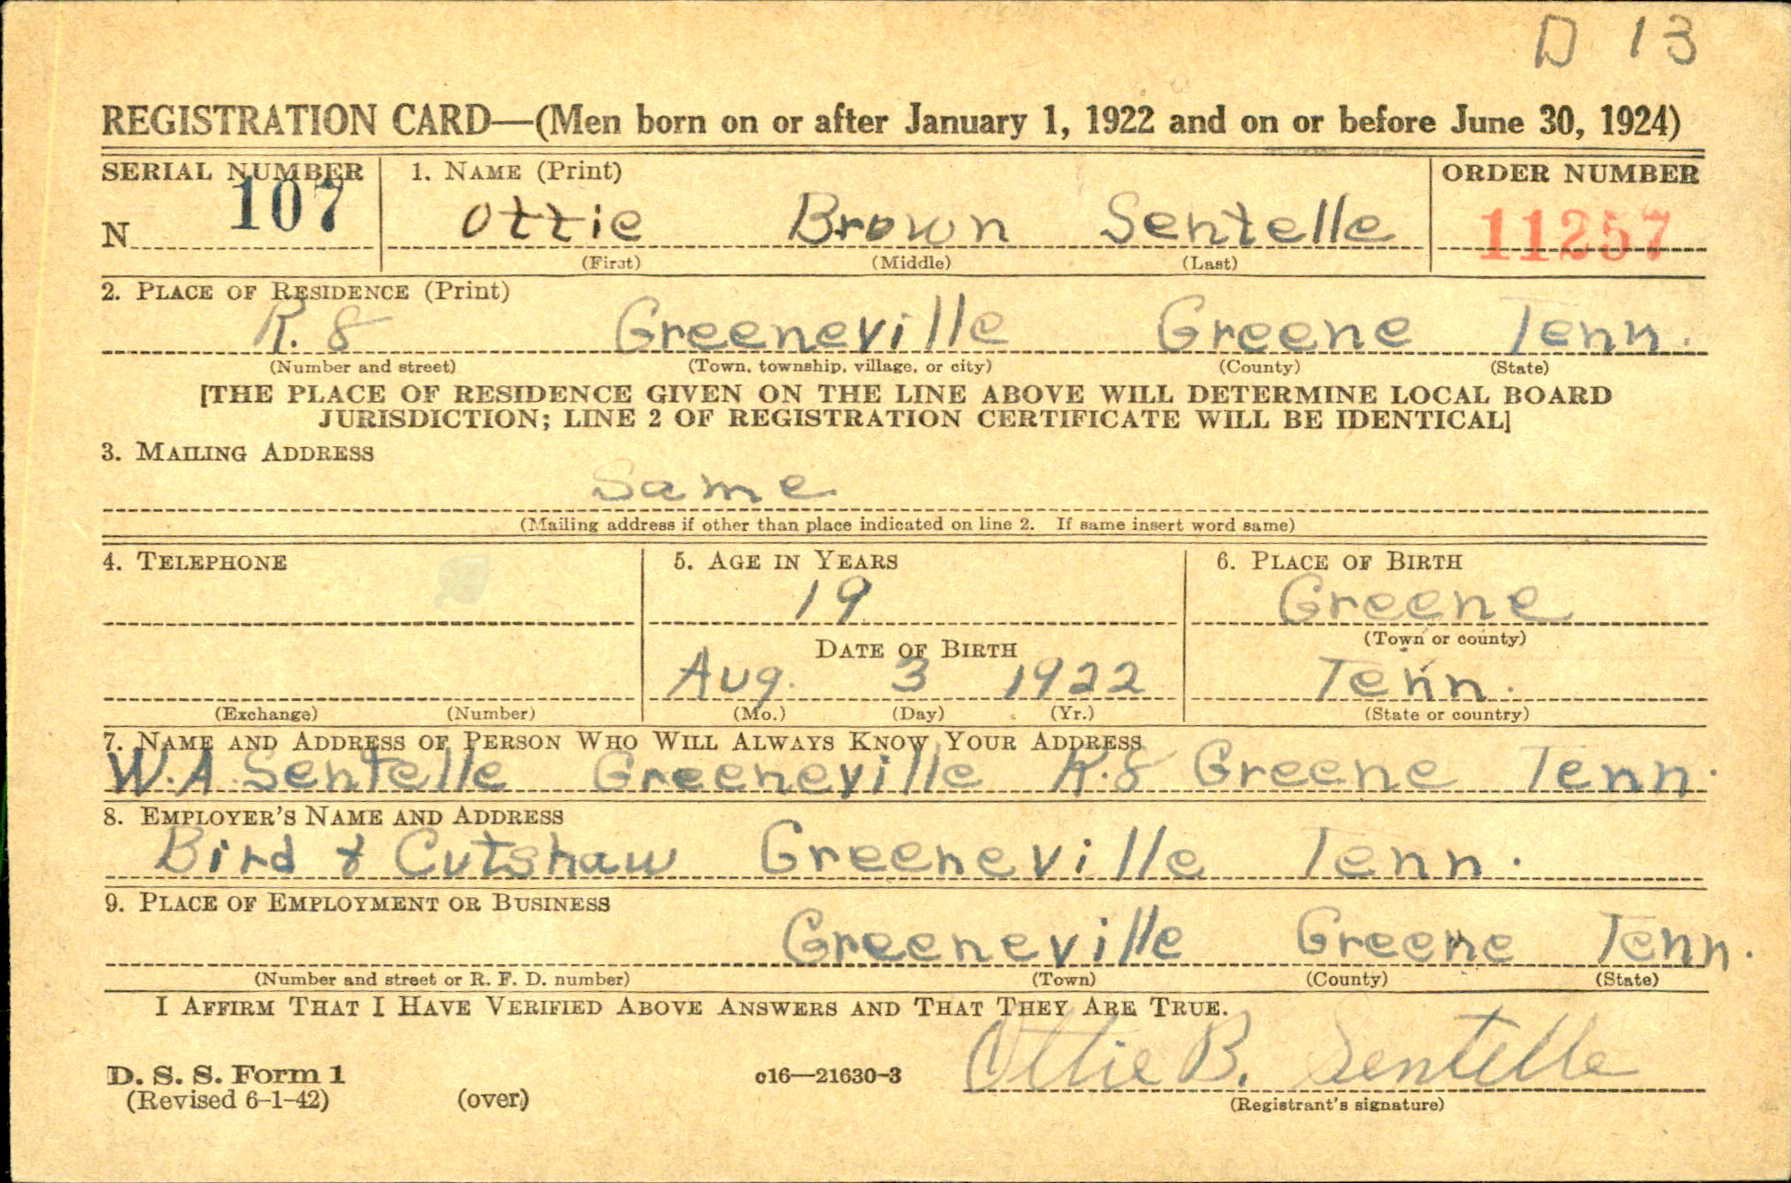 D 13
REGISTRATION CARD—(Men born on or after January 1, 1922 and on or before June 30, 1924)
SERIAL NUMBER 1. NAME (Print) ORDER NUMBER
N 107 Ottie Brown Sentelle 11257
(First) (Middle) (Last)
2. PLACE OF RESIDENCE (Print)
R. 8 Greeneville Greene Tenn.
(Number and street) (Town, township, village, or city) (County) (State)
[THE PLACE OF RESIDENCE GIVEN ON THE LINE ABOVE WILL DETERMINE LOCAL BOARD
JURISDICTION; LINE 2 OF REGISTRATION CERTIFICATE WILL BE IDENTICAL]
3. MAILING ADDRESS
Same
(Mailing address if other than place indicated on line 2. If same insert word same)
4. TELEPHONE 5. AGE IN YEARS 6. PLACE OF BIRTH
19 Greene
DATE OF BIRTH (Town or county)
Aug. 3 1922 Tenn.
(Exchange) (Number) (Mo.) (Day) (Yr.) (State or country)
7. NAME AND ADDRESS OF PERSON WHO WILL ALWAYS KNOW YOUR ADDRESS
W.A. Sentelle Greeneville R.8 Greene Tenn.
8. EMPLOYER'S NAME AND ADDRESS
Bird & Cutshaw Greeneville Tenn.
9. PLACE OF EMPLOYMENT OR BUSINESS
Greeneville Greene Tenn.
(Number and street or R. F. D. number) (Town) (County) (State)
I AFFIRM THAT I HAVE VERIFIED ABOVE ANSWERS AND THAT THEY ARE TRUE.
Ottie B. Sentelle
D. S. S. Form 1 c16—21630-3
(Revised 6-1-42) (over) (Registrant's signature)